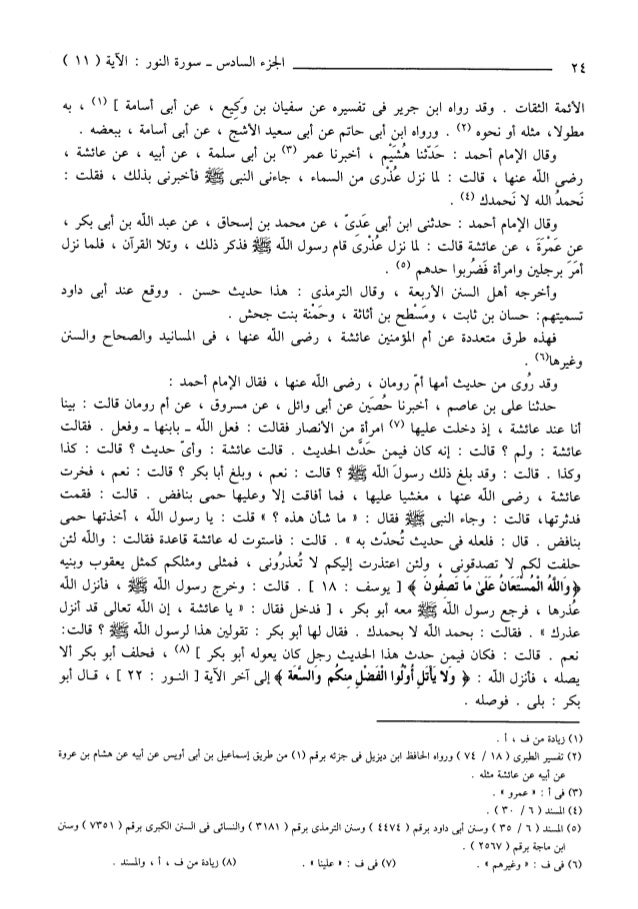 ٢٤ الجزء السادس ـ سورة النور : الآية ( ١١ )
الأئمة الثقات . وقد رواه ابن جرير فى تفسيره عن سفيان بن وكِيع ، عن أبى أسامة ] (١) ، به
مطولا، مثله أو نحوه (٢) . ورواه ابن أبى حاتم عن أبى سعيد الأشج ، عن أبى أسامة ، ببعضه .
وقال الإمام أحمد : حَدّثنا هُشَيْم ، أخبرنا عمر (٣) بن أبى سلمة ، عن أبيه ، عن عائشة ،
رضى الله عنها ، قالت : لما نزل عُذْرى من السماء ، جاءنى النبى ﷺ فأخبرنى بذلك ، فقلت :
نَحمدُ الله لا نَحمدك (٤) .
وقال الإمام أحمد : حدثنى ابن أبى عَدِىّ ، عن محمد بن إسحاق ، عن عبد الله بن أبى بكر ،
عن عَمْرَةَ ، عن عائشة قالت : لما نزل عُذْرىَ قام رسول الله ﷺ فذكر ذلك ، وتلا القرآن ، فلما نزل
أمَرَ برجلين وامرأة فَضُربوا حدهم (٥) .
وأخرجه أهل السنن الأربعة ، وقال الترمذى : هذا حديث حسن . ووقع عند أبى داود
تسميتهم: حسان بن ثابت ، ومِسْطح بن أثاثة ، وحَمْنة بنت جحش .
فهذه طرق متعددة عن أم المؤمنين عائشة ، رضى الله عنها ، فى المسانيد والصحاح والسنن
وغيرها(٦) .
وقد رُوى من حديث أمها أمّ رومان ، رضى الله عنها ، فقال الإمام أحمد :
حدثنا على بن عاصم ، أخبرنا حُصَين عن أبى وائل ، عن مسروق ، عن أم رومان قالت : بينا
أنا عند عائشة ، إذ دخلت عليها (٧) امرأة من الأنصار فقالت : فعل الله ـ بابنها ـ وفعل . فقالت
عائشة : ولم ؟ قالت : إنه كان فيمن حَدَّث الحديث . قالت عائشة : وأىّ حديث ؟ قالت : كذا
وكذا . قالت : وقد بلغ ذلك رسولَ الله ﷺ ؟ قالت : نعم ، وبلغ أبا بكر ؟ قالت : نعم ، فخرت
عائشة ، رضى الله عنها ، مغشيا عليها ، فما أفاقت إلا وعليها حمى بنافض . قالت : فقمت
فدثرتها، قالت : وجاء النبى ﷺ فقال : « ما شأن هذه ؟ » قلت : يا رسول الله ، أخذتها حمى
بنافض . قال : فلعله فى حديث تُحدّث به » . قالت : فاستوت له عائشة قاعدة فقالت : والله لئن
حلفت لكم لا تصدقونى ، ولئن اعتذرت إليكم لا تُعذرونى ، فمثلى ومثلكم كمثل يعقوب وبنيه
﴿ وَاللَّهُ الْمُسْتَعَانُ عَلَىٰ مَا تَصِفُونَ ﴾ [ يوسف : ١٨ ] . قالت : وخرج رسول الله ﷺ ، فأنزل الله
عذرها ، فرجع رسول الله ﷺ معه أبو بكر ، [ فدخل فقال : « يا عائشة ، إن الله تعالى قد أنزل
عذرك » . فقالت : بحمد الله لا بحمدك . فقال لها أبو بكر : تقولين هذا لرسول الله ﷺ ؟ قالت:
نعم . قالت : فكان فيمن حدث هذا الحديث رجل كان يعوله أبو بكر ] (٨) ، فحلف أبو بكر ألا
يصله ، فأنزل الله : ﴿ وَلا يَأْتَلِ أُوْلُوا الْفَضْلِ مِنكُمْ وَالسَّعَةِ ﴾ إلى آخر الآية [ النور : ٢٢ ] ، قال أبو
بكر : بلى . فوصله .
(١) زيادة من ف ، أ .
(٢) تفسير الطبرى ( ١٨ / ٧٤ ) ورواه الحافظ ابن ديزيل فى جزئه برقم (١) من طريق إسماعيل بن أبى أويس عن أبيه عن هشام بن عروة
عن أبيه عن عائشة مثله .
(٣) فى أ : « عمرو » .
(٤) المسند ( ٦ / ٣٠ ) .
(٥) المسند ( ٦ / ٣٥ ) وسنن أبى داود برقم ( ٤٤٧٤ ) وسنن الترمذى برقم ( ٣١٨١ ) والنسائى فى السنن الكبرى برقم ( ٧٣٥١ ) وسنن
ابن ماجة برقم ( ٢٥٦٧ ) .
(٦) فى ف : « وغيرهم » . (٧) فى ف : « علينا » . (٨) زيادة من ف ، أ ، والمسند .